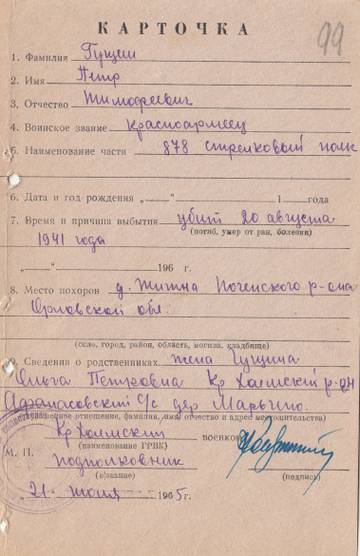 99
КАРТОЧКА
1. Фамилия Гущин
2. Имя Петр
3. Отчество Тимофеевич
4. Воинское звание красноармеец
5. Наименование части 878 стрелковый полк
6. Дата и год рождения „ “ 1 года
7. Время и причина выбытия убит 20 августа
(погиб, умер от ран, болезни)
1941 года
„ “ 196 г.
8. Место похорон д. Жимна р-она
Орловской обл.
(село, город, район, область, могила, кладбище)
9. Сведения о родственниках жена Гущина
Ольга Петровна Кр Холмский р-он
Афанасовский С/с дер Марьино.
отношение, фамилия, имя, отчество и адрес местожительства)
Кр Холмский военком
(наименование ГРВК)
М. П. подполковник
(звание) (подпись)
„21“ июля 1965 г.